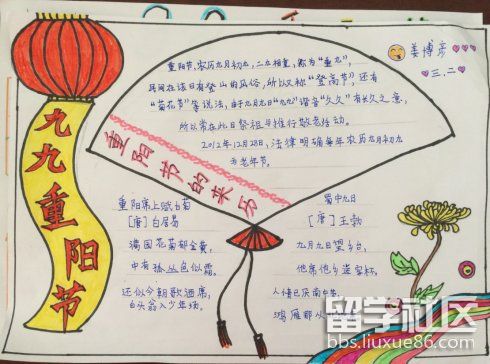 九九重阳节
姜博彦
三.二
重阳节,农历九月初九,二九相重,称为“重九”,
民间在该日有登山的风俗,所以又称“登高节”,还有
“菊花节”等说法,由于九月九日“九九”谐音“久久”有长久之意,
所以常在此日祭祖与推行敬老活动。
2012年12月28日,法律明确每年农历九月初九
为老年节。
重阳节的来历
重阳席上赋白菊
[唐]白居易
满园花菊郁金黄,
中有孤丛色似霜。
还似今朝歌酒席,
白头翁入少年场。
蜀中九日
[唐]王勃
九月九日望乡台,
他席他乡送客杯。
人情已厌南中苦,
鸿雁那从
留学社区
bbs.liuxue86.com